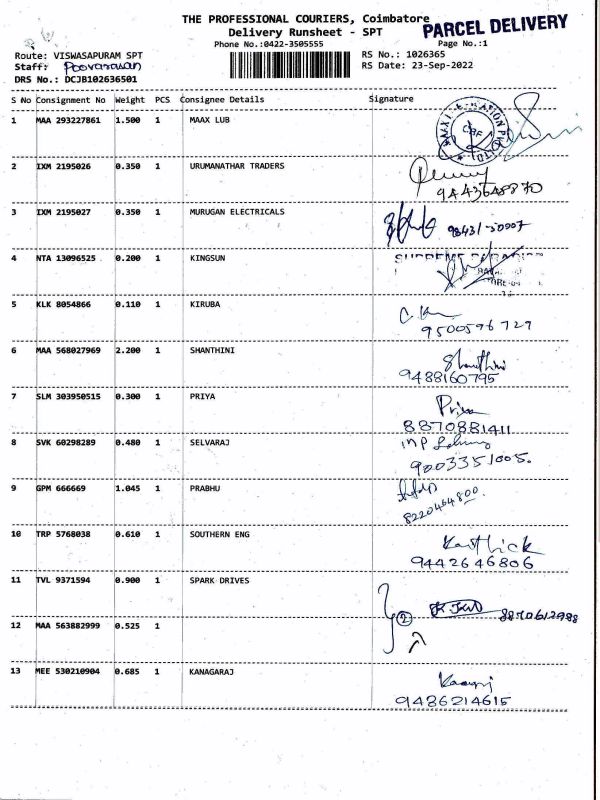 THE PROFESSIONAL COURIERS, Coimbatore
PARCEL DELIVERY
Delivery Runsheet - SPT
Phone No.:0422-3505555
Page No.:1
Route: VISWASAPURAM SPT
RS No.: 1026365
Staff: Poovarasan
RS Date: 23-Sep-2022
DRS No.: DCJB102636501
S No Consignment No Weight PCS Consignee Details Signature
1 MAA 293227861 1.500 1 MAAX LUB
2 IXM 2195026 0.350 1 URUMANATHAR TRADERS
9443648870
3 IXM 2195027 0.350 1 MURUGAN ELECTRICALS
4 NTA 13096525 0.200 1 KINGSUN
SUPREME PARADISE
5 KLK 8054866 0.110 1 KIRUBA
9500596729
6 MAA 568027969 2.200 1 SHANTHINI
Shanthini
9488160795
7 SLM 303950515 0.300 1 PRIYA
Priya
8870881411
8 SVK 60298289 0.480 1 SELVARAJ
9003351005.
9 GPM 666669 1.045 1 PRABHU
8220464800
10 TRP 5768038 0.610 1 SOUTHERN ENG
Karthick
9442646806
11 TVL 9371594 0.900 1 SPARK DRIVES
2
8870612988
12 MAA 563882999 0.525 1
13 MEE 530210904 0.685 1 KANAGARAJ
9486214615